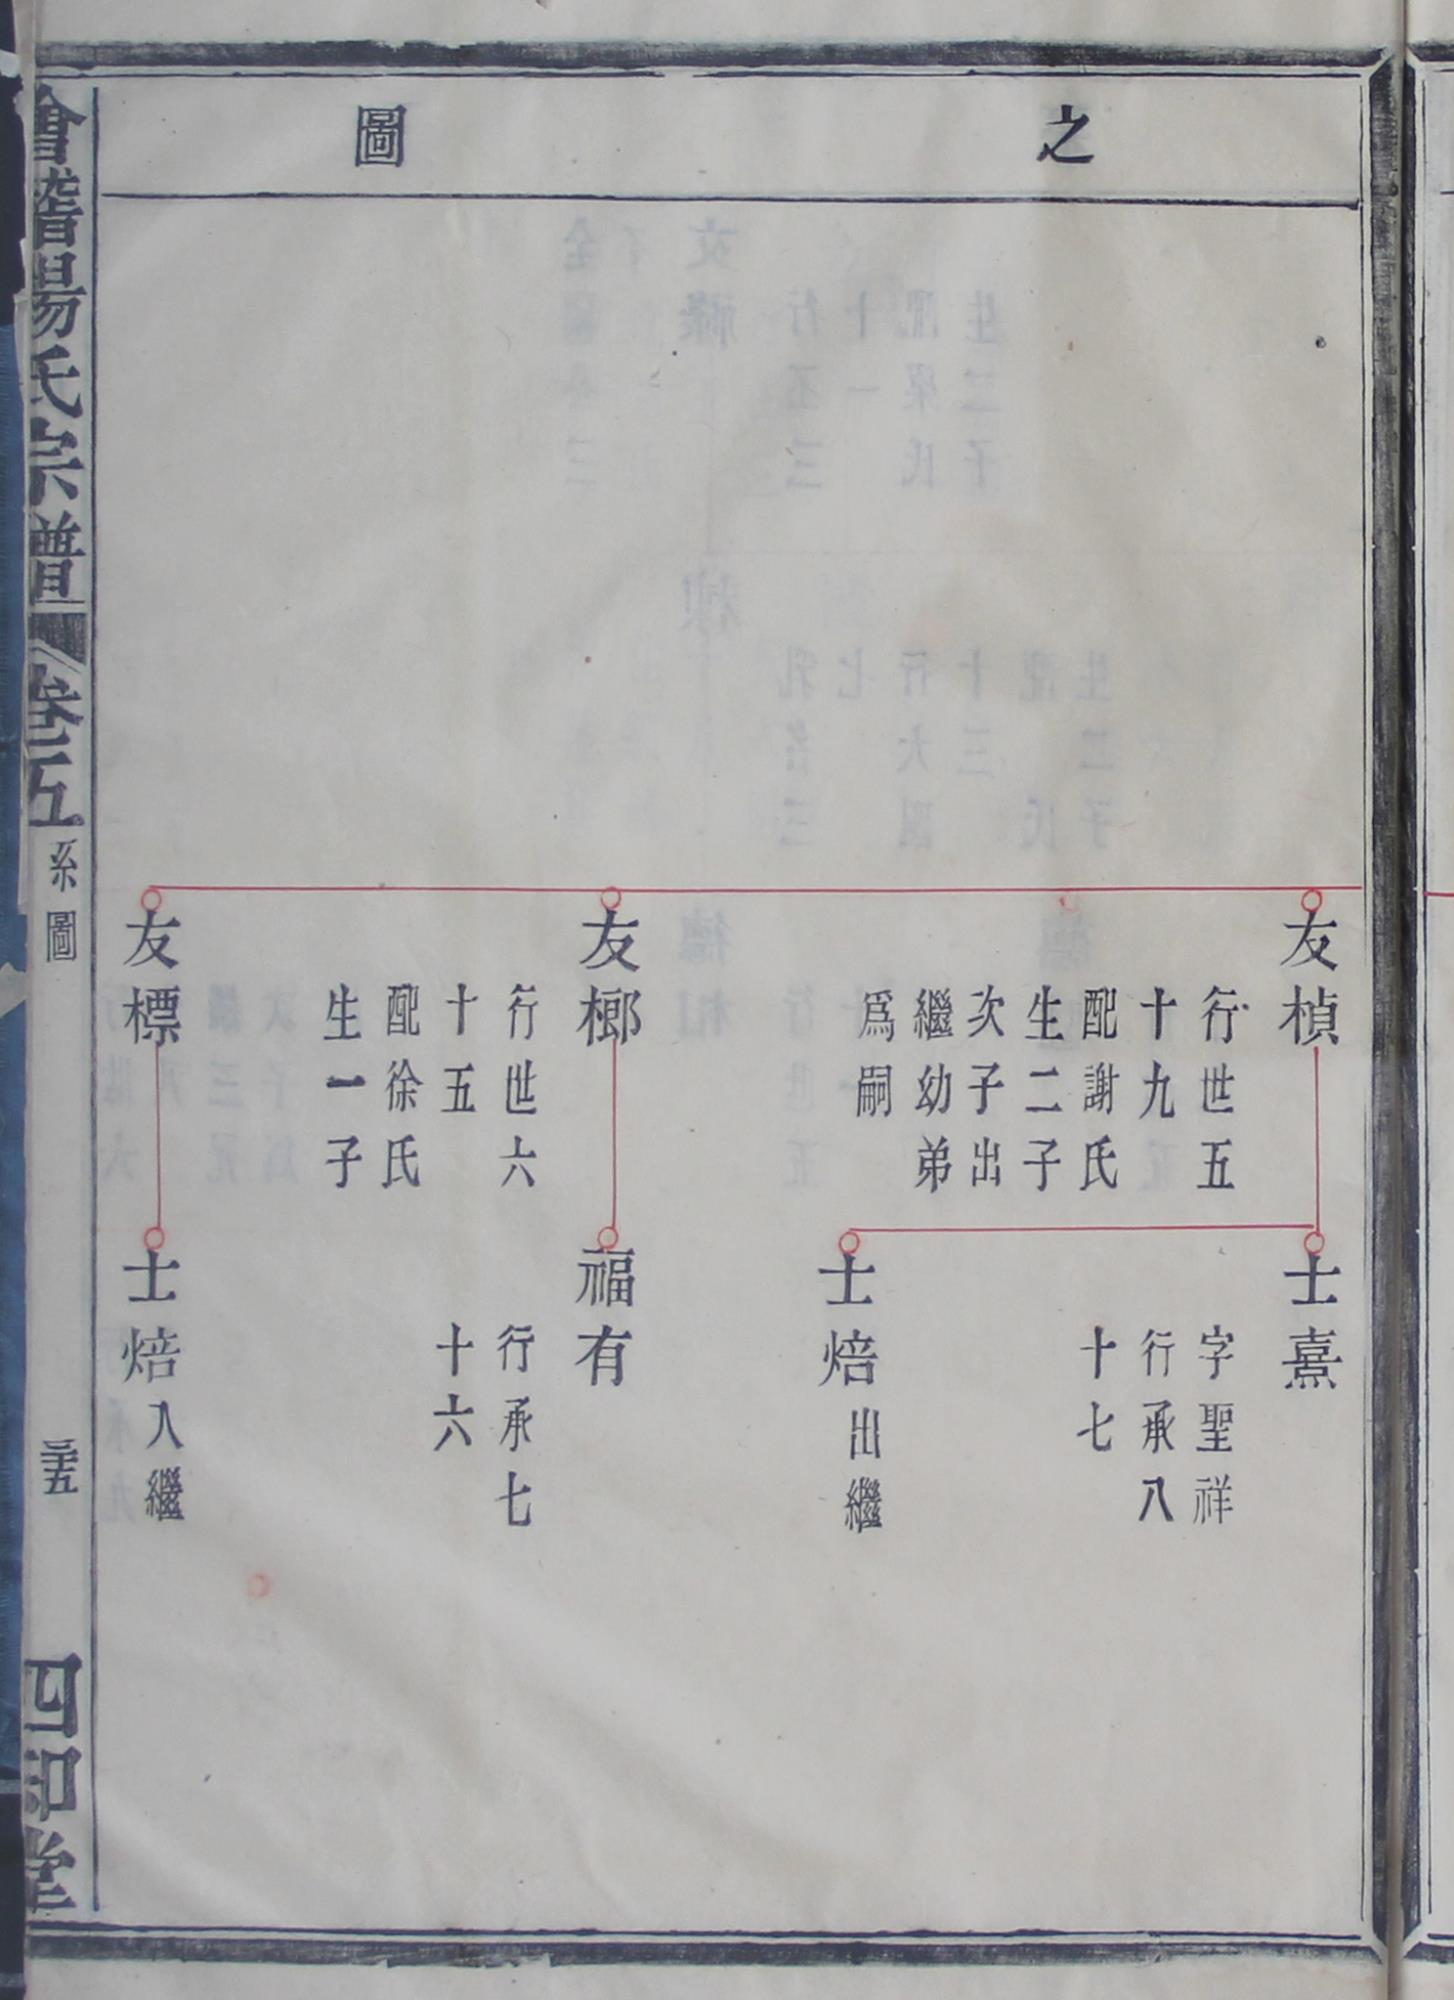 之
圖
友楨
行世五
十九
配謝氏
生二子
次子出
繼幼弟
爲嗣
士熹
字聖祥
行承八
十七
士焙出繼
友榔
行世六
十五
配徐氏
生一子
福有
行承七
十六
友標
士焙入繼
會稽楊氏宗譜
卷五
系圖
三十五
四知堂